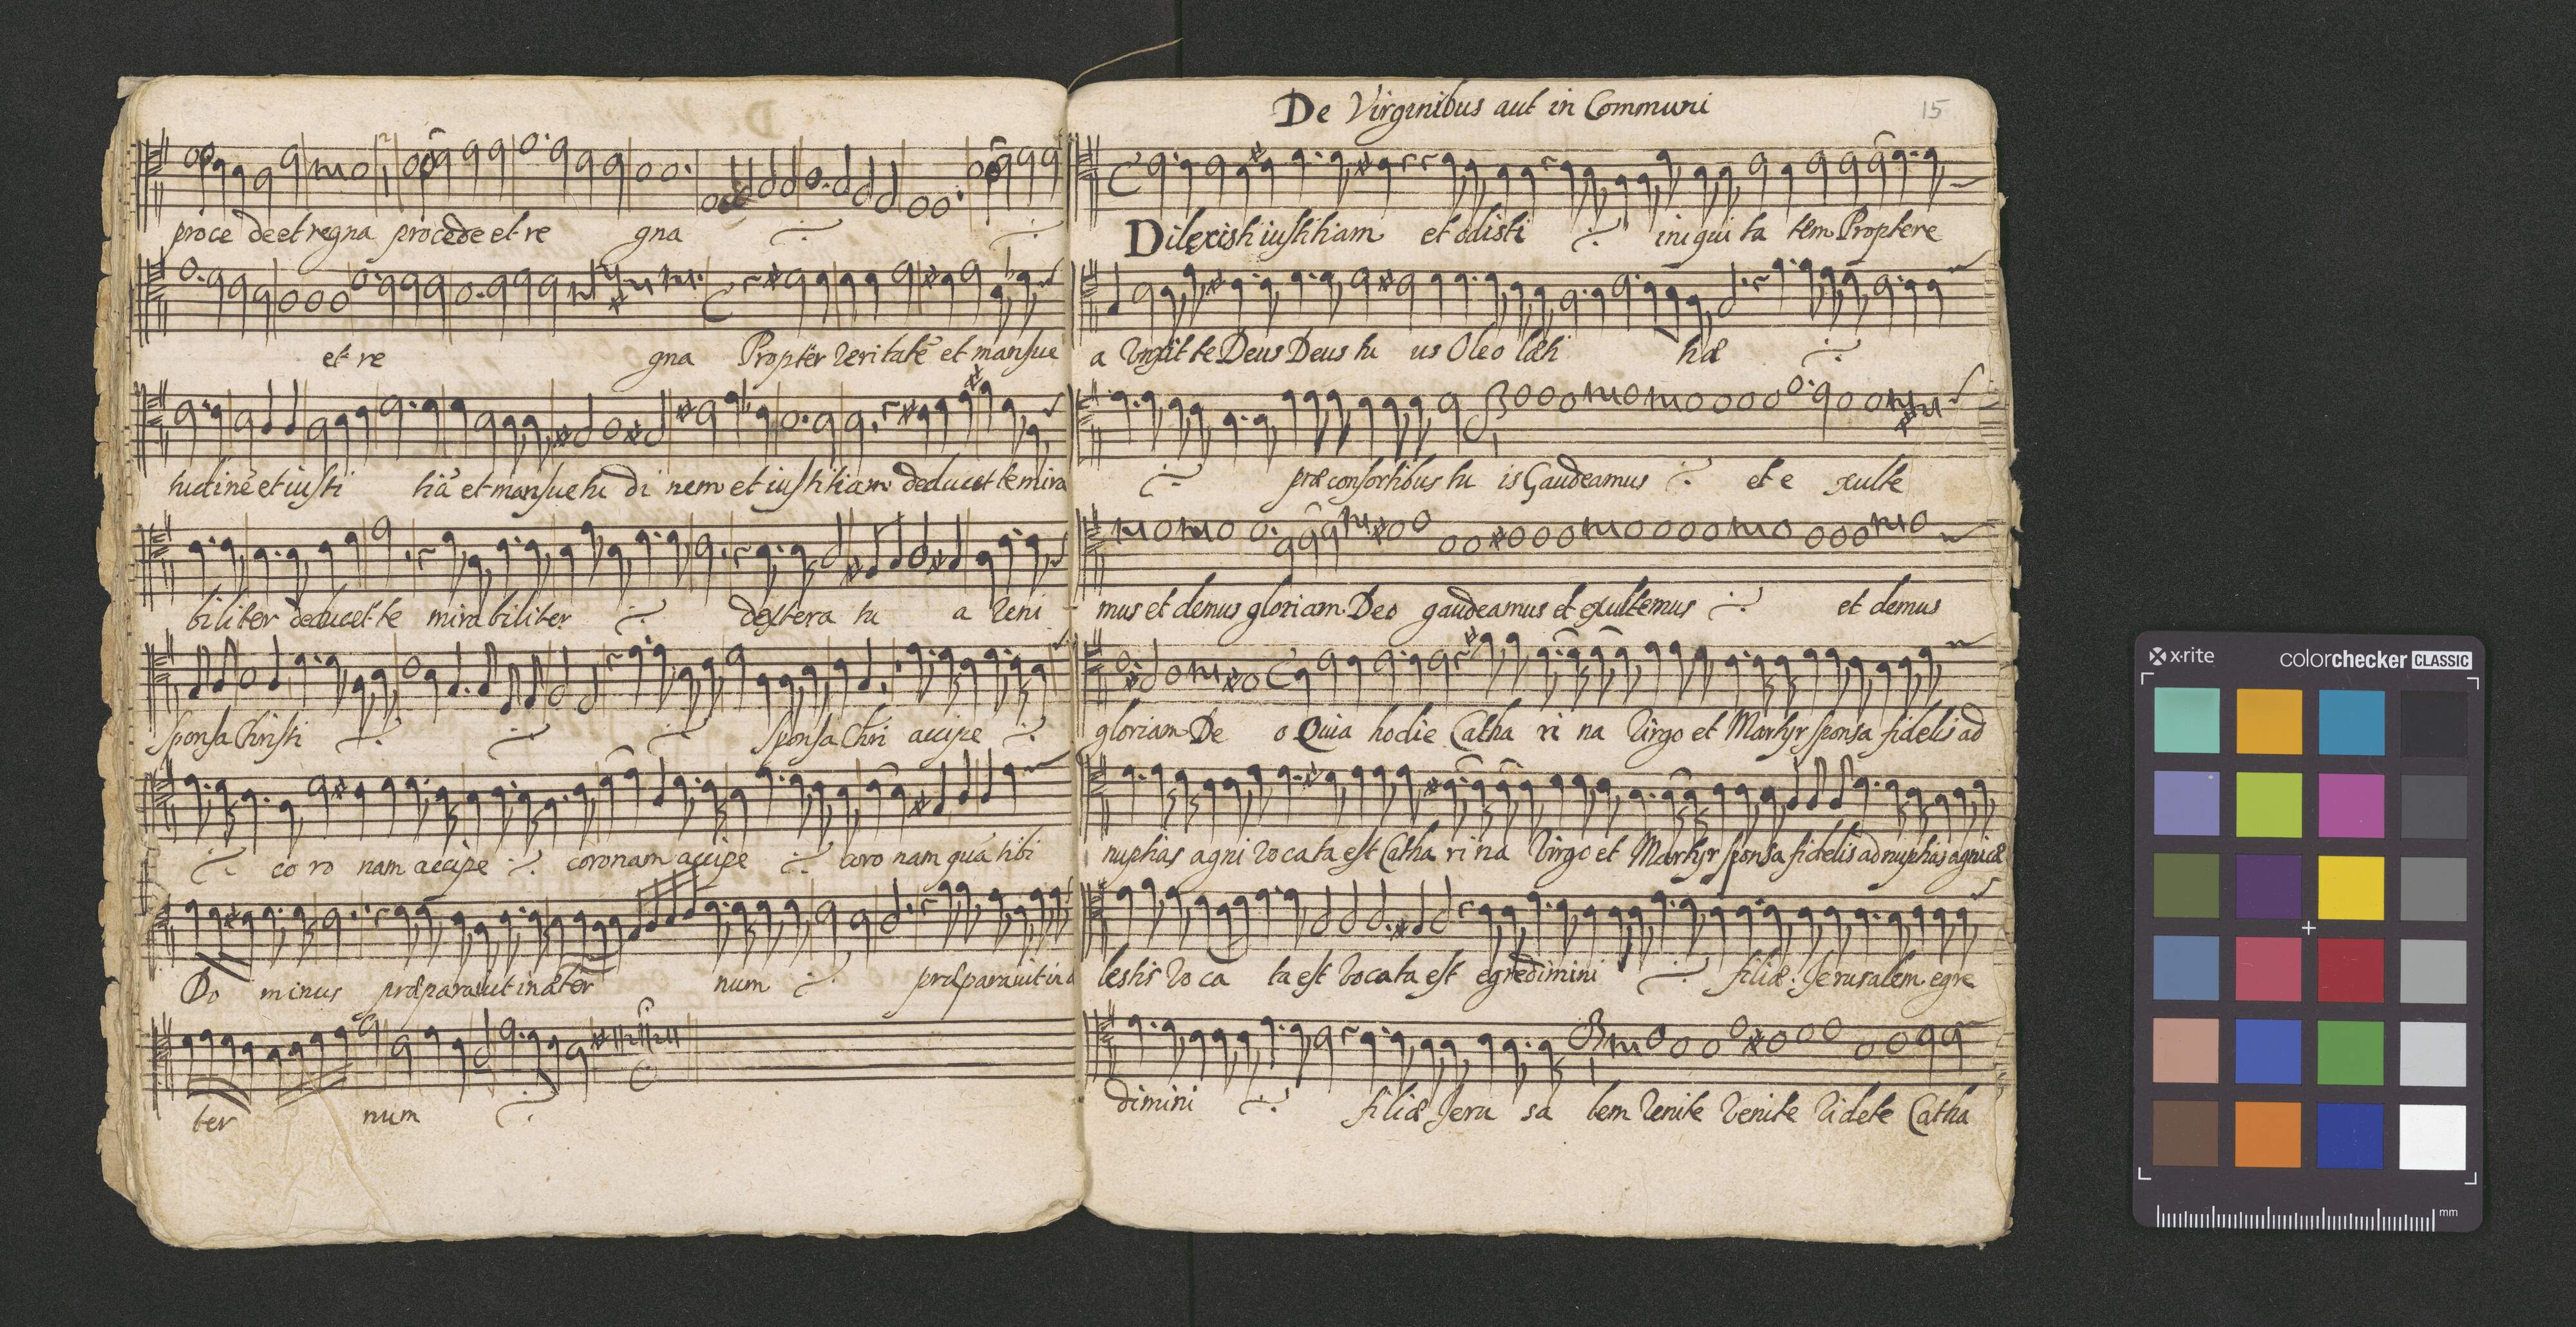 proce de et regna procede et re gna
et re gna Propter veritatē et mansue
tudinē et iusti tiā et mansuetu di nem et iustitiam deducet te mira
biliter deducet te mira biliter dextera tu a Veni
sponsa Christi sponsa Chri accipe
co ro nam accipe coronam accipe coro nam quā tibi
Do minus præparauit in æter num præparauit in æ
ter num
De Virginibus aut in Communi
15
Dilexisti iustitiam et odisti iniqui ta tem Proptere
a Vnxit te Deus Deus tu us Oleo læti tiæ
præ consortibus tu is Gaudeamus et e xulte
mus et demus gloriam Deo gaudeamus et exultemus et demus
gloriam De o Quia hodie Catha ri na Virgo et Martyr sponsa fidelis ad
nuptias agni vocata est Catha ri na Virgo et Martyr sponsa fidelis ad nuptias agni cæ
lestis vo ca ta est vocata est egredimini filiæ Jerusalem egre
dimini filiæ Jeru sa lem Venite Venite Videte Catha
x-rite colorchecker CLASSIC
mm